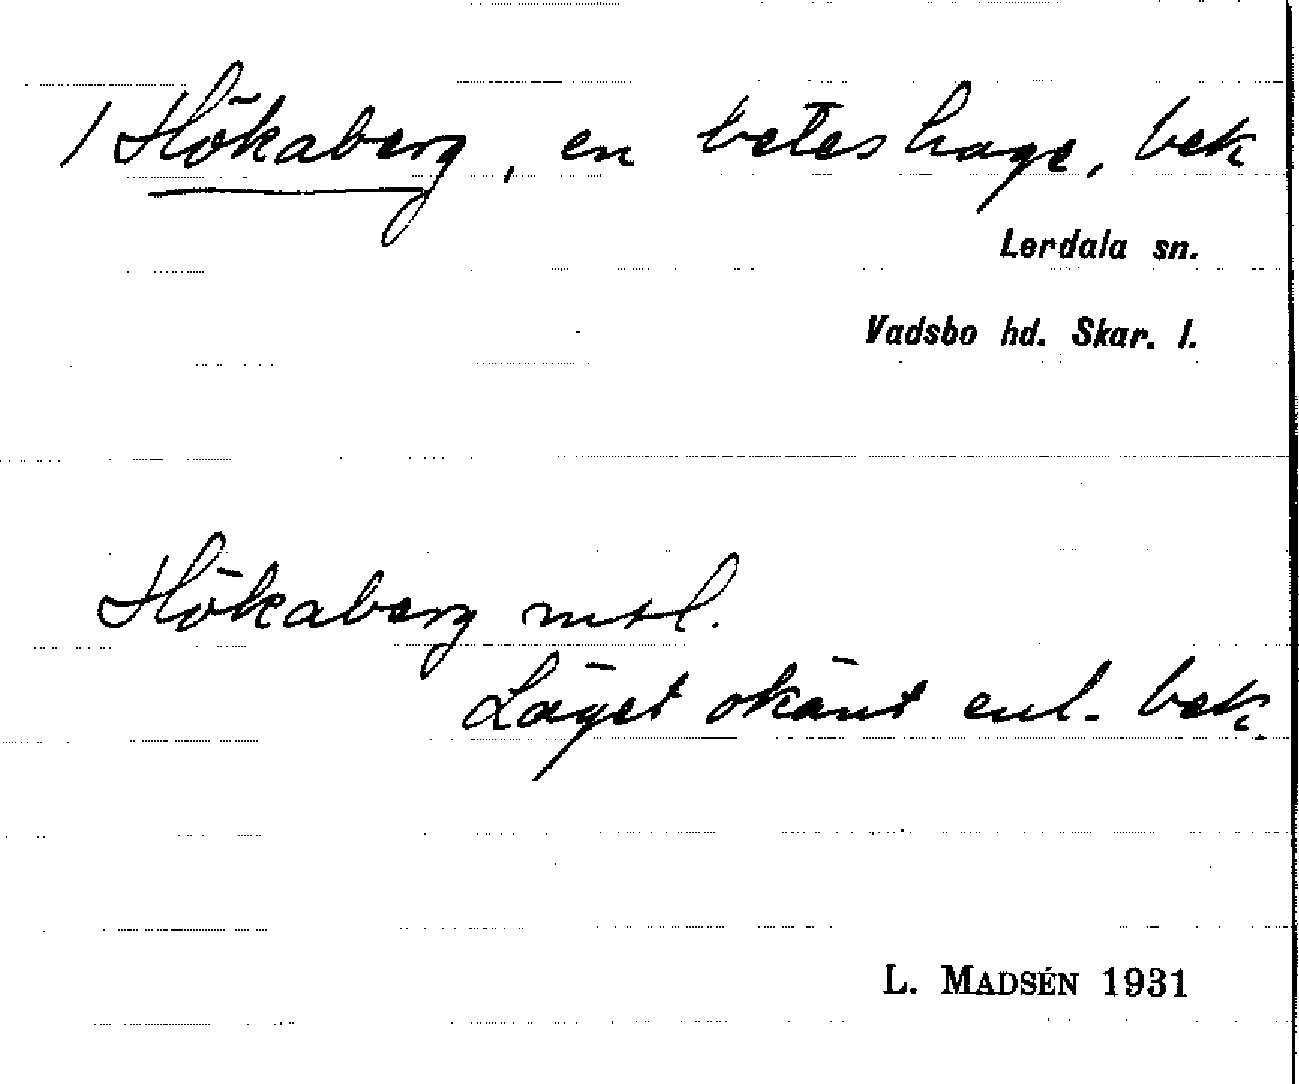 / Hökaberg, en beteshage, bek
Lerdala sn.
Vadsbo hd. Skar. l.
Hökaberg mtl.
Läget okänt enl. bek.
L. MADSÉN 1931